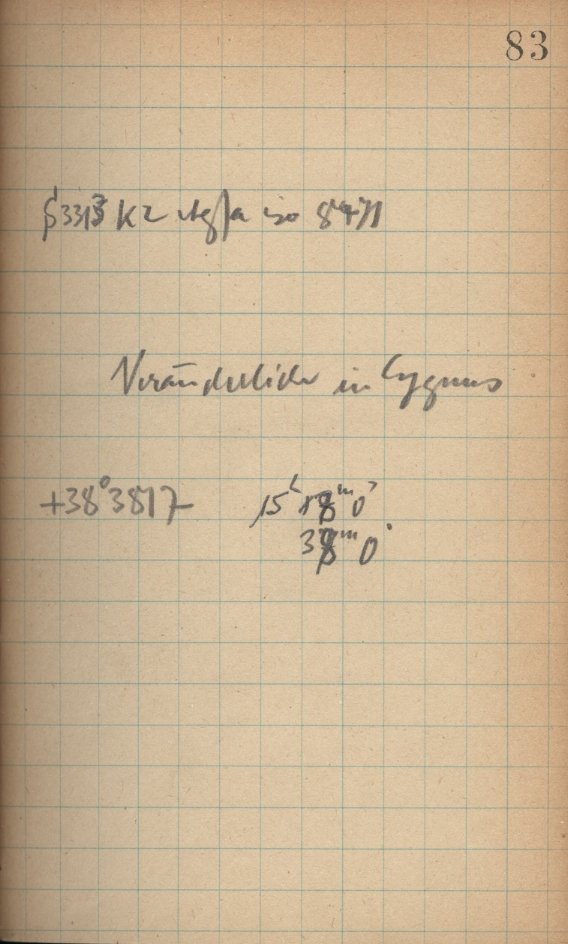 83
3313 K2
Veränderliche in Cygnus
+38°3817 15ʰ 18ᵐ 0ˢ
38ᵐ 0ˢ